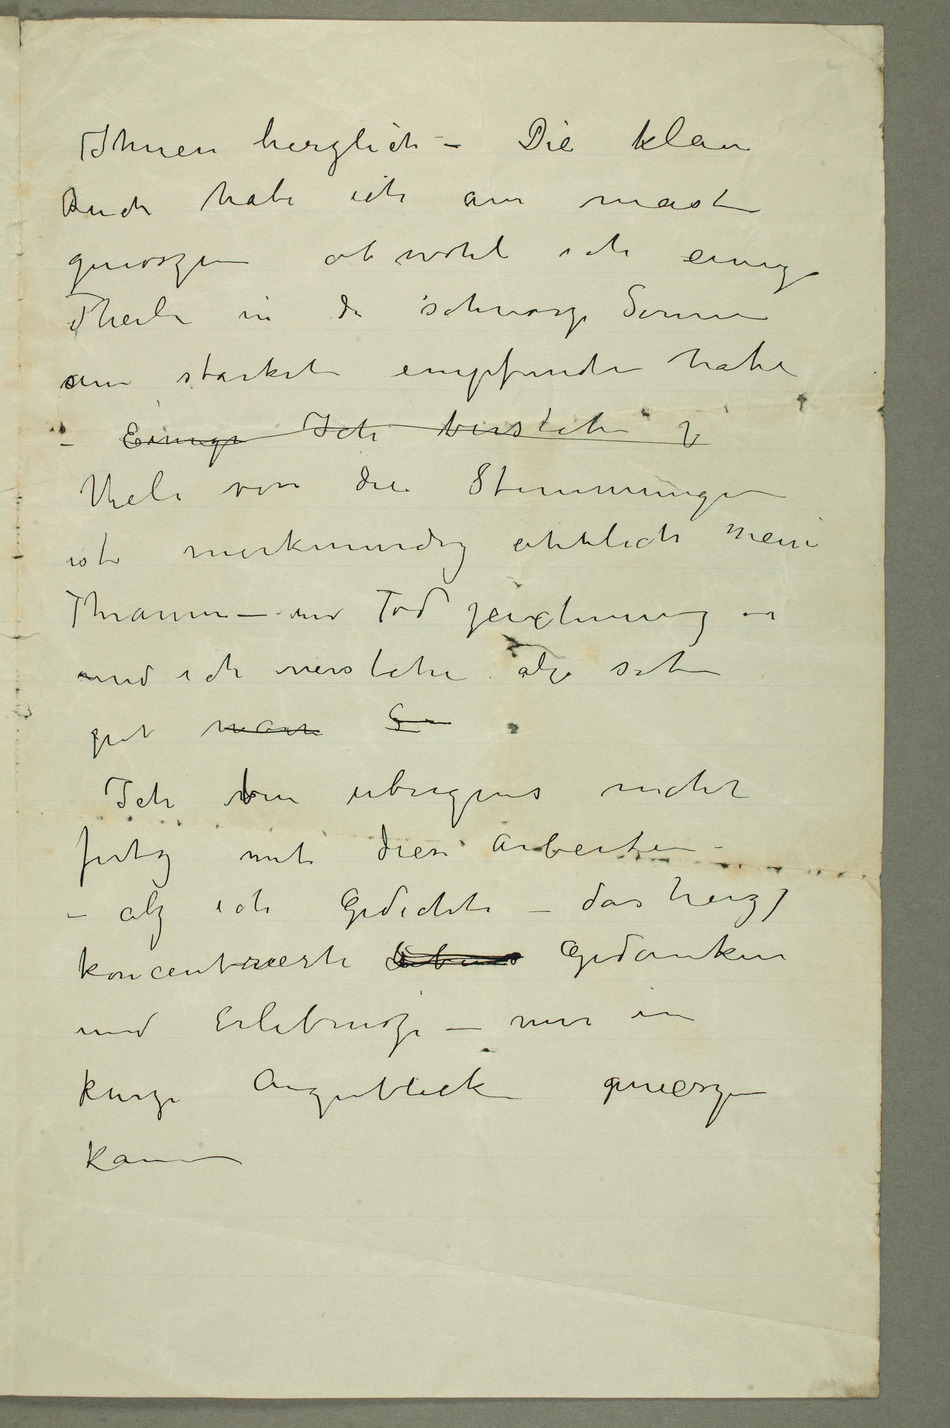 Ihnen herzlich – Die klane
Buch habe ich am mast
gnioszen obwohl ich einige
Theile in de schwarze Sonne
am starkste empfunden habe
– Einige Ich verstehe
Viele von die Stimmungen
ist merkwurdig ähhlich meine
Thraum – und Tod zeichnungen
und ich verstehe also sehr
gut
Ich bin ubrigens nicht
fertig mit diese arbeiten –
– als ich Gedichte – das heizt
koncentrierte Lebens Gedanken
und Erlebnisze – nur in
kurze Augenblicke gnieszen
kann